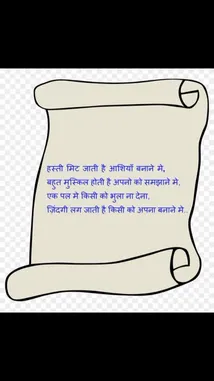 हस्ती मिट जाती है आशियाँ बनाने मे,
बहुत मुस्किल होती है अपनो को समझाने मे,
एक पल मे किसी को भुला ना देना,
ज़िंदगी लग जाती है किसी को अपना बनाने मे..